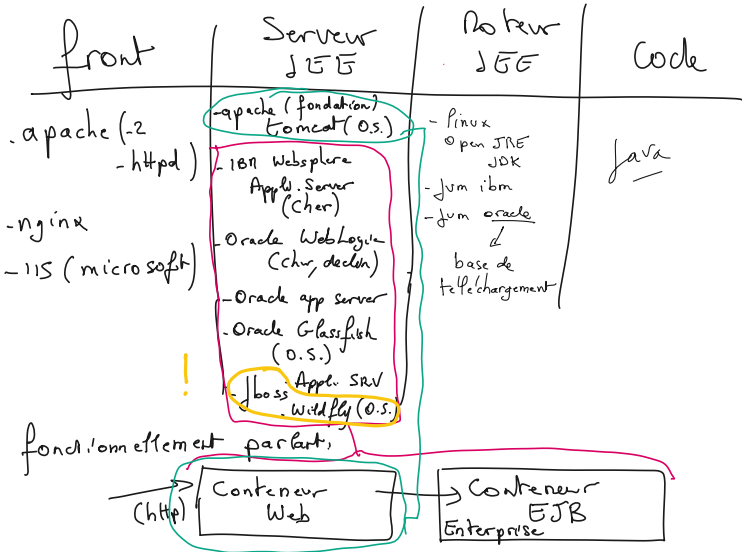 front
Serveur
JEE
Moteur
JEE
Code
- apache (-2
-httpd)
- nginx
- IIS (microsoft)
- apache (fondation)
tomcat (O.S.)
- IBM Websphere
Appli. Server
(cher)
- Oracle WebLogic
(cher, declin)
- Oracle app server
- Oracle Glassfish
(O.S.)
- Jboss - Appli. SRV
- Wildfly (O.S.)
!
- Linux
Open JRE
JDK
- Jvm ibm
- Jvm oracle
base de
téléchargement
Java
fonctionnellement parlant,
(http)
Conteneur
Web
Conteneur
EJB
Enterprise